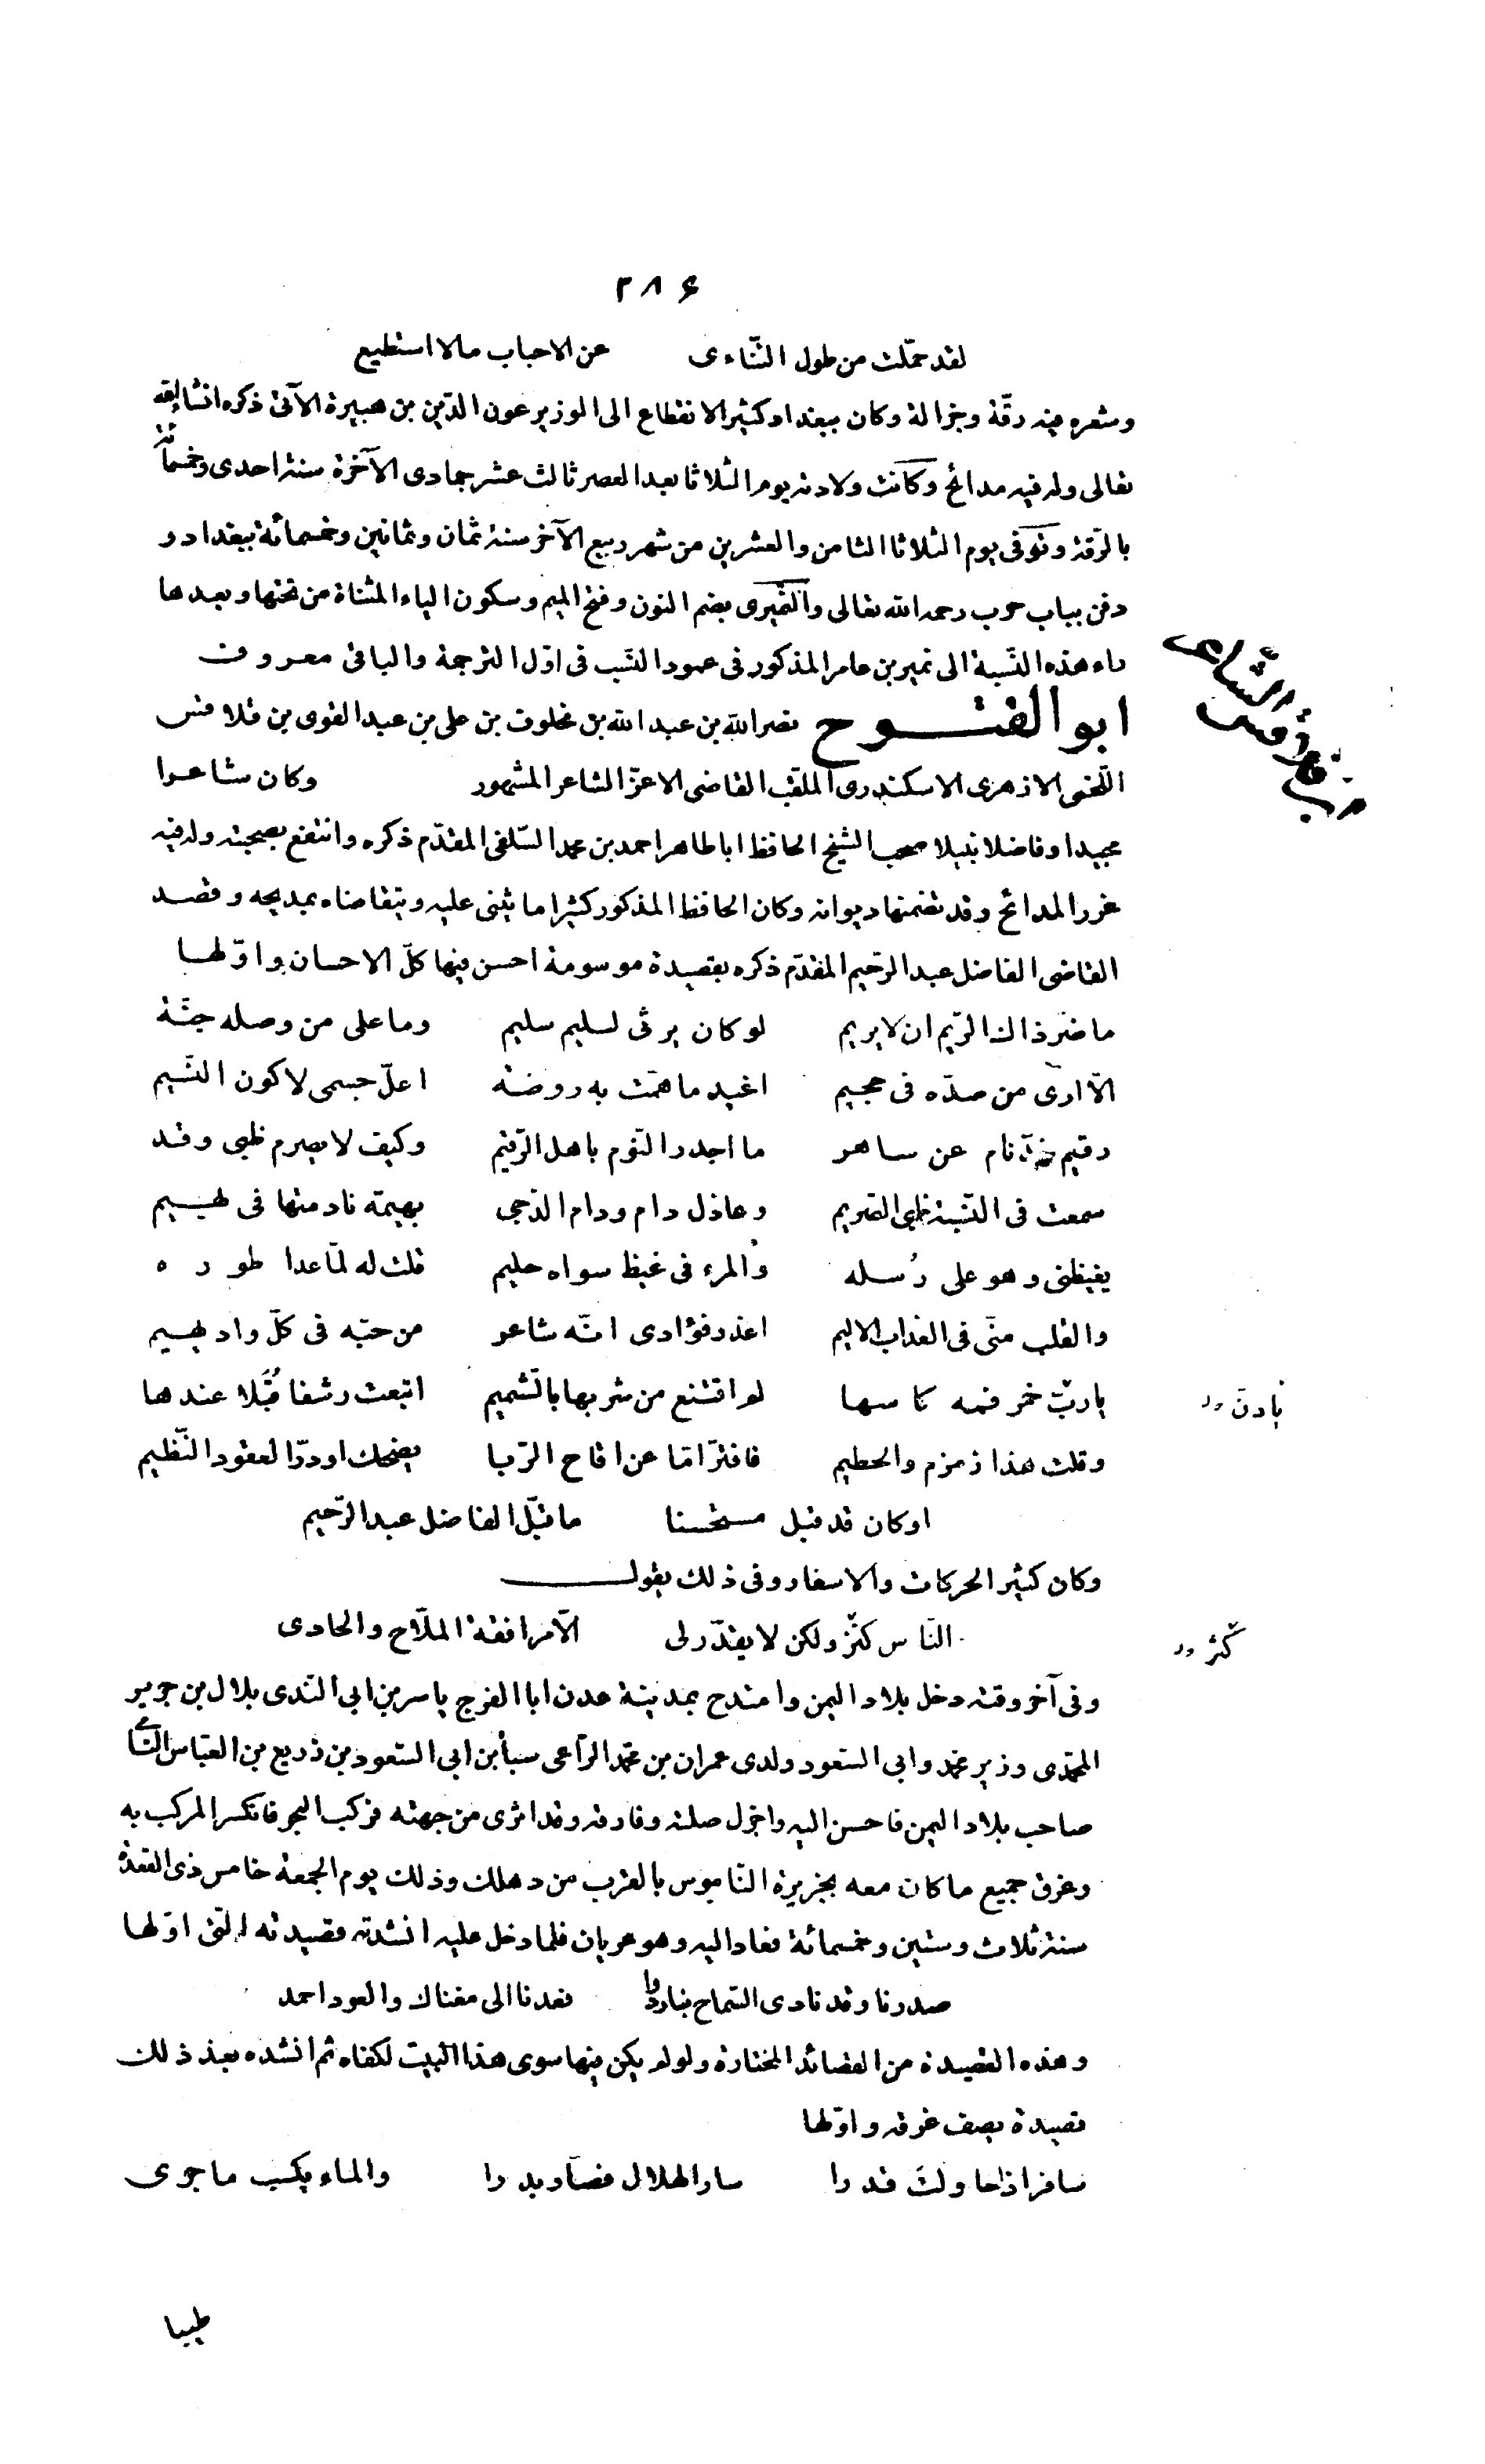 ٢٨۶
لقد حمّلت من طول التّناءى عن الاحباب مالا استطيع
وشعره فيه رقّة وجزالة وكان ببغداد كثير الانقطاع الى الوزير عون الدّين بن هبيرة الآتى ذكره انشاءالله
تعالى وله فيه مدائح وكانت ولادته يوم الثلاثا بعد العصر ثالث عشر جمادى الآخرة سنة احدى وخمسمائة
بالرّقة وتوفى يوم الثلاثا الثامن والعشرين من شهر ربيع الآخر سنة ثمان وثمانين وخمسمائة ببغداد و
دفن بباب حرب رحمه الله تعالى والنّميرى بضم النون وفتح الميم وسكون الياء المثناة من تحتها وبعدها
راء هذه النّسبة الى نمير بن عامر المذكور فى عمود النّسب فى اوّل الترجمة والباقى معروف
ابو الفتوح نصر الله بن عبد الله بن مخلوف بن على بن عبد القوى بن قلاقس
اللّخمى الازهرى الاسكندرى الملقب القاضى الاعزّ الشاعر المشهور وكان شاعرا
مجيدا وفاضلا نبيلا صحب الشيخ الحافظ ابا طاهر احمد بن محمد السّلفى المقدّم ذكره وانتفع بصحبته وله فيه
غرر المدائح وقد تضمنها ديوانه وكان الحافظ المذكور كثيرا ما يثنى عليه ويتقاضاه بمديحه وقصد
القاضى الفاضل عبد الرّحيم المقدّم ذكره بقصيدة موسومة احسن فيها كلّ الاحسان واوّلها
ما ضرّ ذاك الرّيم ان لا يريم لو كان يرثى لسليم سليم وما على من وصله جنّة
الّا ارى من صدّه فى جحيم اغيد ما همّت به روضة اعلّ جسمى لاكون النّسيم
رقيم خدّ نام عن ساهر ما اجدر النّوم باهل الرّقيم وكيف لا يصرم ظبى وقد
سمعت فى النّسبة ظبى الصّريم وعاذل دام ودام الدّجى بهيمة نادمتها فى بهيم
يغيظنى وهو على رُسله والمرء فى غيظ سواه حليم قلت له لمّا عدا طوره
والقلب منّى فى العذاب الاليم اعذر فؤادى انّه شاعر من حبّه فى كلّ واد يهيم
يا ربّ خمر فمه كاسها لم اقتنع من شربها بالشّميم اتبعت رشفا قُبَلا عندها
وقلت هذا زمزم والحطيم فافترّ امّا عن اقاح الرّبا يضحك او درّ العقود النّظيم
او كان قد قبل مستحسنا ما قبّل الفاضل عبد الرّحيم
وكان كثير الحركات والاسفار وفى ذلك يقول
النّاس كثرٌ ولكن لا يقدّر لى الّا مرافقة الملّاح والحادى
كُثّر
وفى آخر وقته دخل بلاد اليمن وامتدح بمدينة عدن ابا الفرج ياسر بن ابى النّدى بلال بن جرير
المحمّدى وزير محمّد وابى السّعود ولدى عمران بن محمّد الدّاعى سبأ بن ابى السّعود بن زريع بن العبّاس اليامى
صاحب بلاد اليمن فاحسن اليه واجزل صلته وفارقه وقد اثرى من جهته فركب البحر فانكسر المركب به
وغرق جميع ما كان معه بجزيرة النّاموس بالقرب من دهلك وذلك يوم الجمعة خامس ذى القعدة
سنة ثلاث وستين وخمسمائة فعاد اليه وهو عريان فلما دخل عليه انشدته قصيدته التى اوّلها
صدرنا وقد نادى السّماح بنا ردوا فعدنا الى مغناك والعود احمد
وهذه القصيدة من القصائد المختارة ولو لم يكن فيها سوى هذا البيت لكفاه ثم انشده بعد ذلك
قصيدة يصف غرقه واوّلها
سافر اذا حاولت قدرا سار الهلال فصار بدرا والماء يكسب ما جرى
طيبا